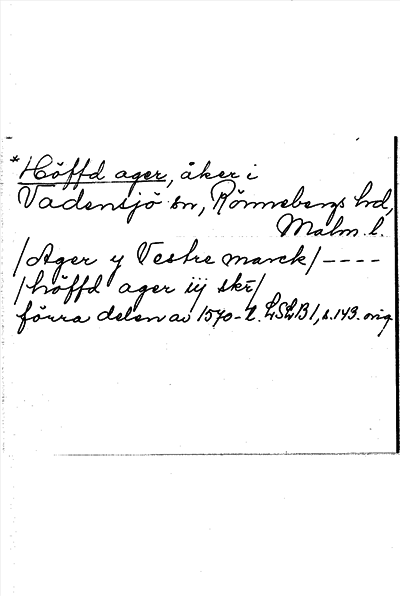 *Höffd ager, åker i
Vadensjö sn, Rönnebergs hd,
Malm. l.
/Ager y Vestre marck/----
/höffd ager iij skr/
förra delen av 1570-t. LSLB 1, s. 143. orig